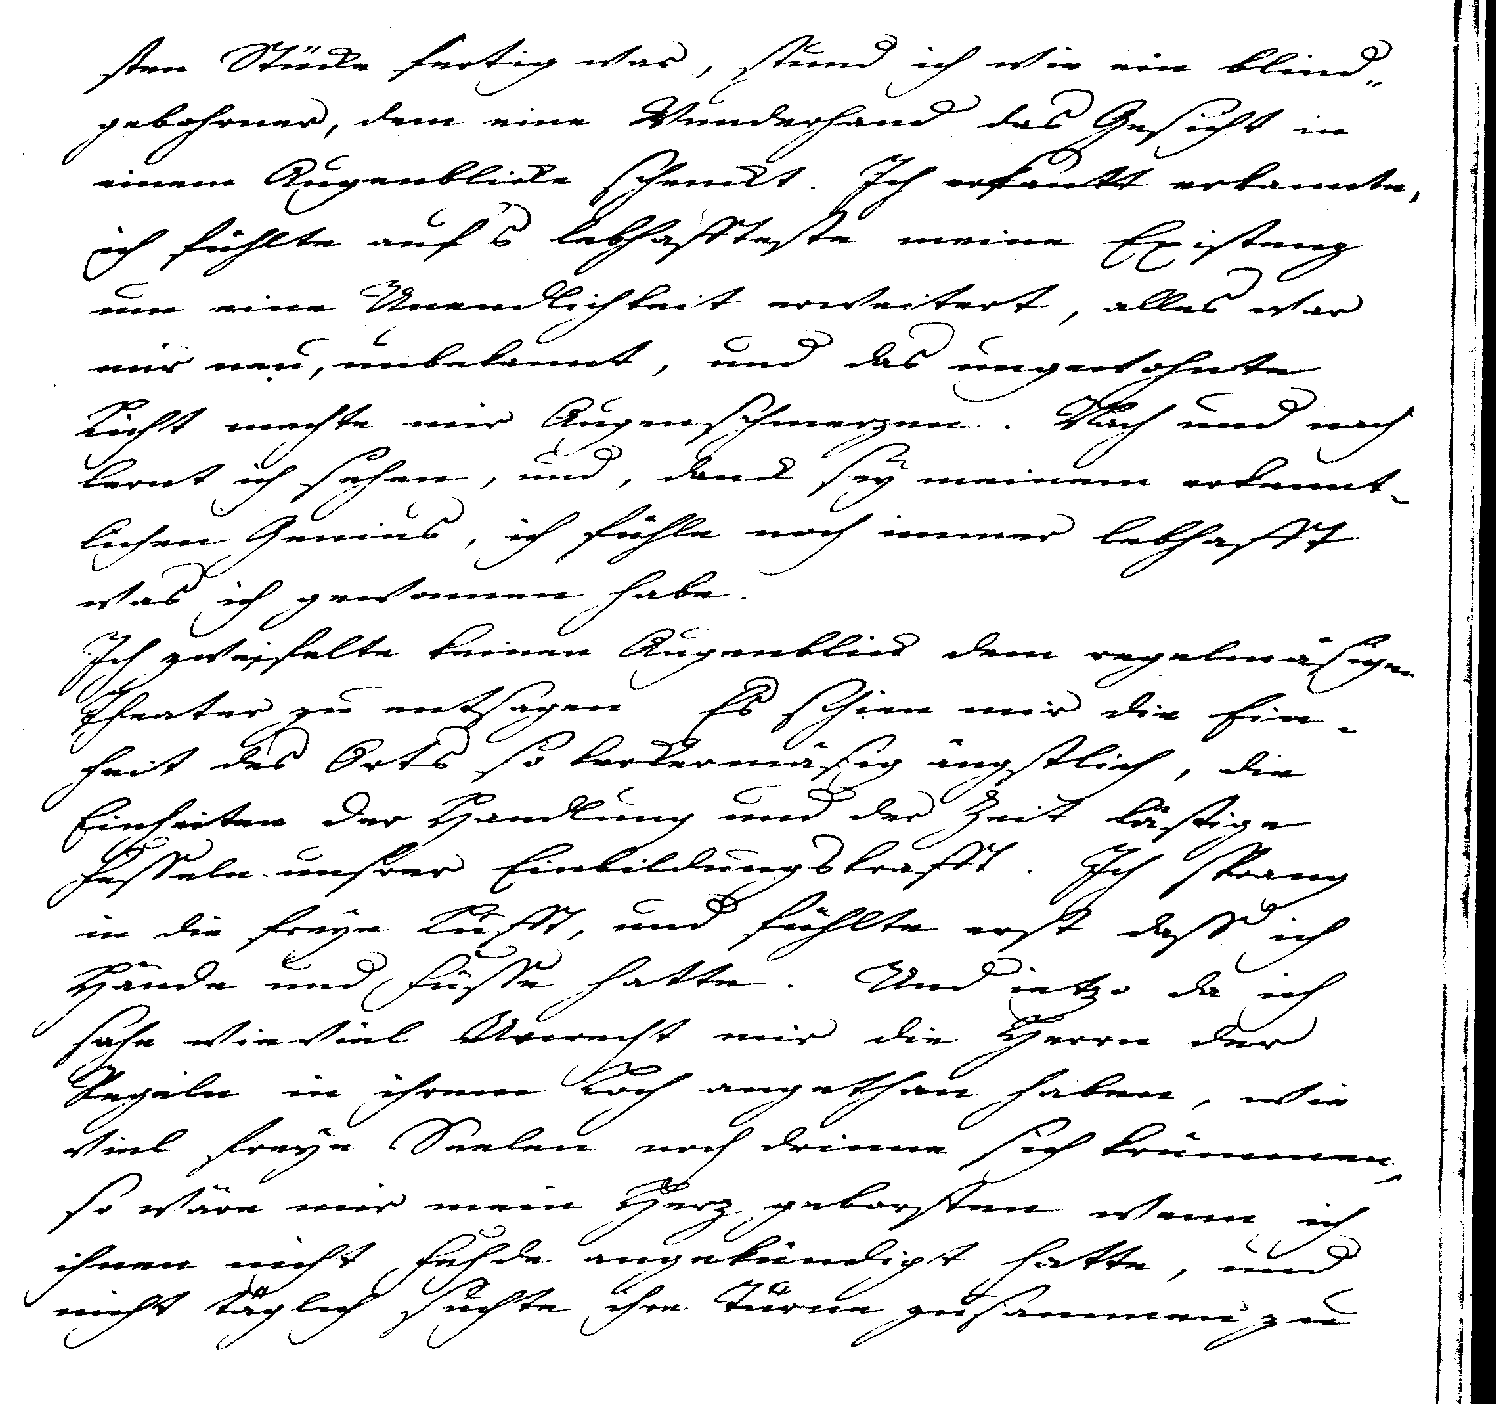 sten Stücke fertig war, stund ich wie ein blind„
gebohrner, dem eine Wunderhand das Gesicht in
einem Augenblicke schenckt. Ich erkantt erkannte,
ich fühlte auf's lebhaffteste meine Existenz
um eine Unendlichkeit erweitert, alles war
mir neu, unbekannt, und das ungewohnte
Licht machte mir Augenschmerzen. Nach und nach
lernt ich sehen, und, danck sey meinem erkannt-
lichen Genius, ich fühle noch immer lebhafft
was ich gewonnen habe.
Ich zweifelte keinen Augenblick dem regelmäsigen
Theater zu entsagen Es schien mir die Ein-
heit des Orts so kerckermäsig ängstlich, die
Einheiten der Handlung und der Zeit lästige
Fesseln unsrer Einbildungskrafft. Ich sprang
in die freye Lufft, und fühlte erst dass ich
Hände und Füsse hatte. Und ietzo da ich
sahe wieviel Unrecht mir die Herrn der
Regeln in ihrem Loch angethan haben, wie
viel freye Seelen noch drinne sich krümmen,
so wäre mir mein Herz geborsten wenn ich
ihnen nicht Fehde angekündigt hätte, und
nicht täglich suchte ihre Türne zusammen zu